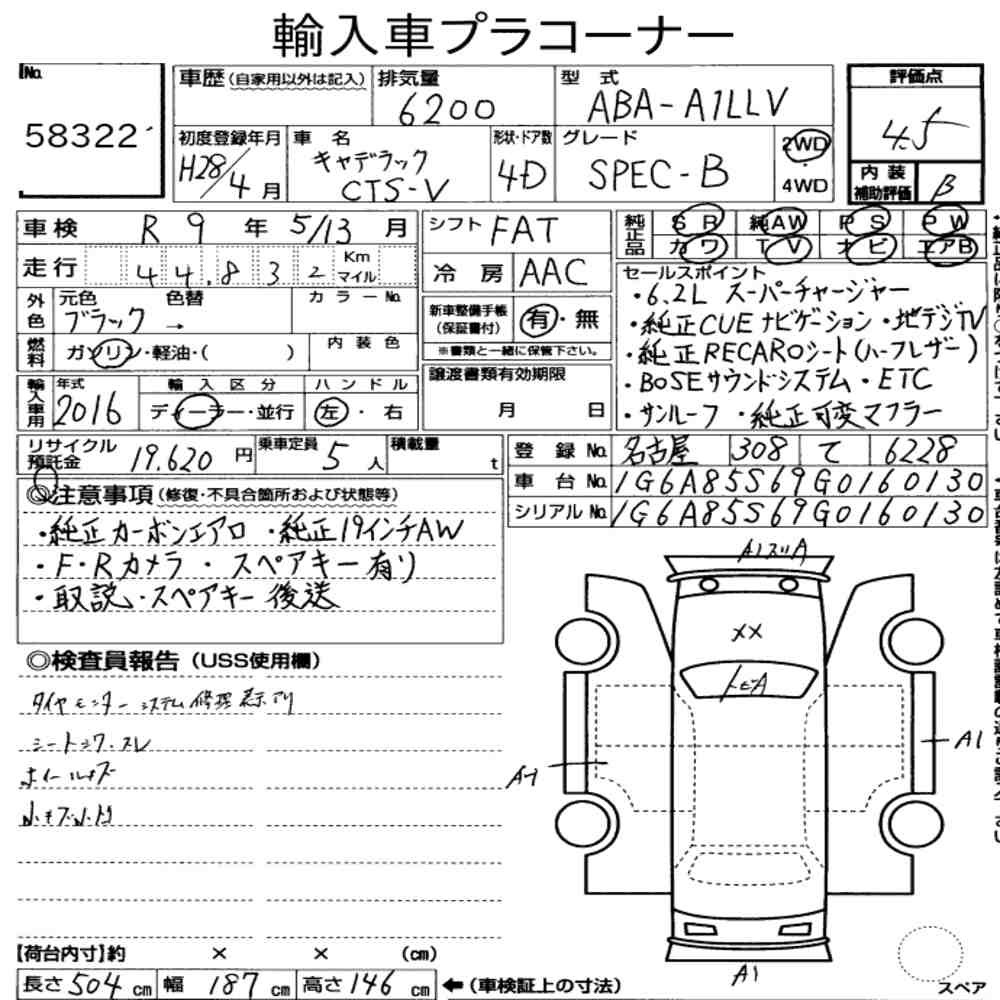 輸入車プラコーナー
No.
58322
車歴 (自家用以外は記入)
排気量
6200
型 式
ABA-A1LLV
評価点
4.5
初度登録年月
H28/4 月
車 名
キャデラック
CTS-V
形状・ドア数
4D
グレード
SPEC-B
2WD
・
4WD
内 装
補助評価
B
車検 R 9 年 5/13 月
シフト FAT
純正品
S R 純AW P S P W
カ ワ T V ナ ビ エアB
走行 44.832 Km マイル
冷 房 AAC
セールスポイント
・6.2L スーパーチャージャー
・純正CUEナビゲーション・地デジTV
・純正RECAROシート(ハーフレザー)
・BOSEサウンドシステム・ETC
・サンルーフ ・純正可変マフラー
外色
元色 色替
ブラック →
カラーNo.
新車整備手帳
(保証書付)
有・無
※書類と一緒に保管下さい。
燃料
ガソリン・軽油・( )
内 装 色
譲渡書類有効期限
月 日
輸入車用
年式
2016
輸 入 区 分
ディーラー・並行
ハ ン ド ル
左 ・ 右
リサイクル
預託金
19.620 円
乗車定員 5 人
積載量
t
登 録 No. 名古屋 308 て 6228
車 台 No. 1G6A85S69G0160130
シリアルNo. 1G6A85S69G0160130
◎注意事項 (修復・不具合箇所および状態等)
・純正カーボンエアロ ・純正19インチAW
・F・Rカメラ ・ スペアキー有り
・取説・スペアキー 後送
◎検査員報告 (USS使用欄)
タイヤモニターシステム修理表示アリ
シートシワ・スレ
ホイールキズ
小キズ小凹
A1スリA
XX
トビA
A1
A1
A1
スペア
【荷台内寸】約 × × (cm)
長さ 504 cm 幅 187 cm 高さ 146 cm ←(車検証上の寸法)